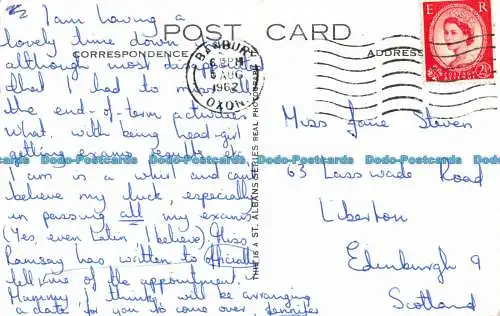 POST CARD
CORRESPONDENCE
ADDRESS
I am having a
lovely time down
although most disappointed
that I had to miss all
the end-of-term activities
what with being head-girl
getting exams results, etc
I am in a whirl and can't
believe my luck, especially
in passing all my exams
(Yes, even Latin, I believe). Miss
Ramsay has written to officially
tell me of the appointment.
Mummy I think will be arranging
a date for you to come over. Jennifer
THIS IS A ST. ALBANS SERIES REAL PHOTOGRAPH
BANBURY
6 PM
5 AUG
1962
OXON.
E R
POSTAGE REVENUE
2½D
Miss Jane Steven
63 Lasswade Road
Liberton
Edinburgh 9
Scotland
Dodo-Postcards Dodo-Postcards Dodo-Postcards Dodo-Postcards Dodo-Postcards